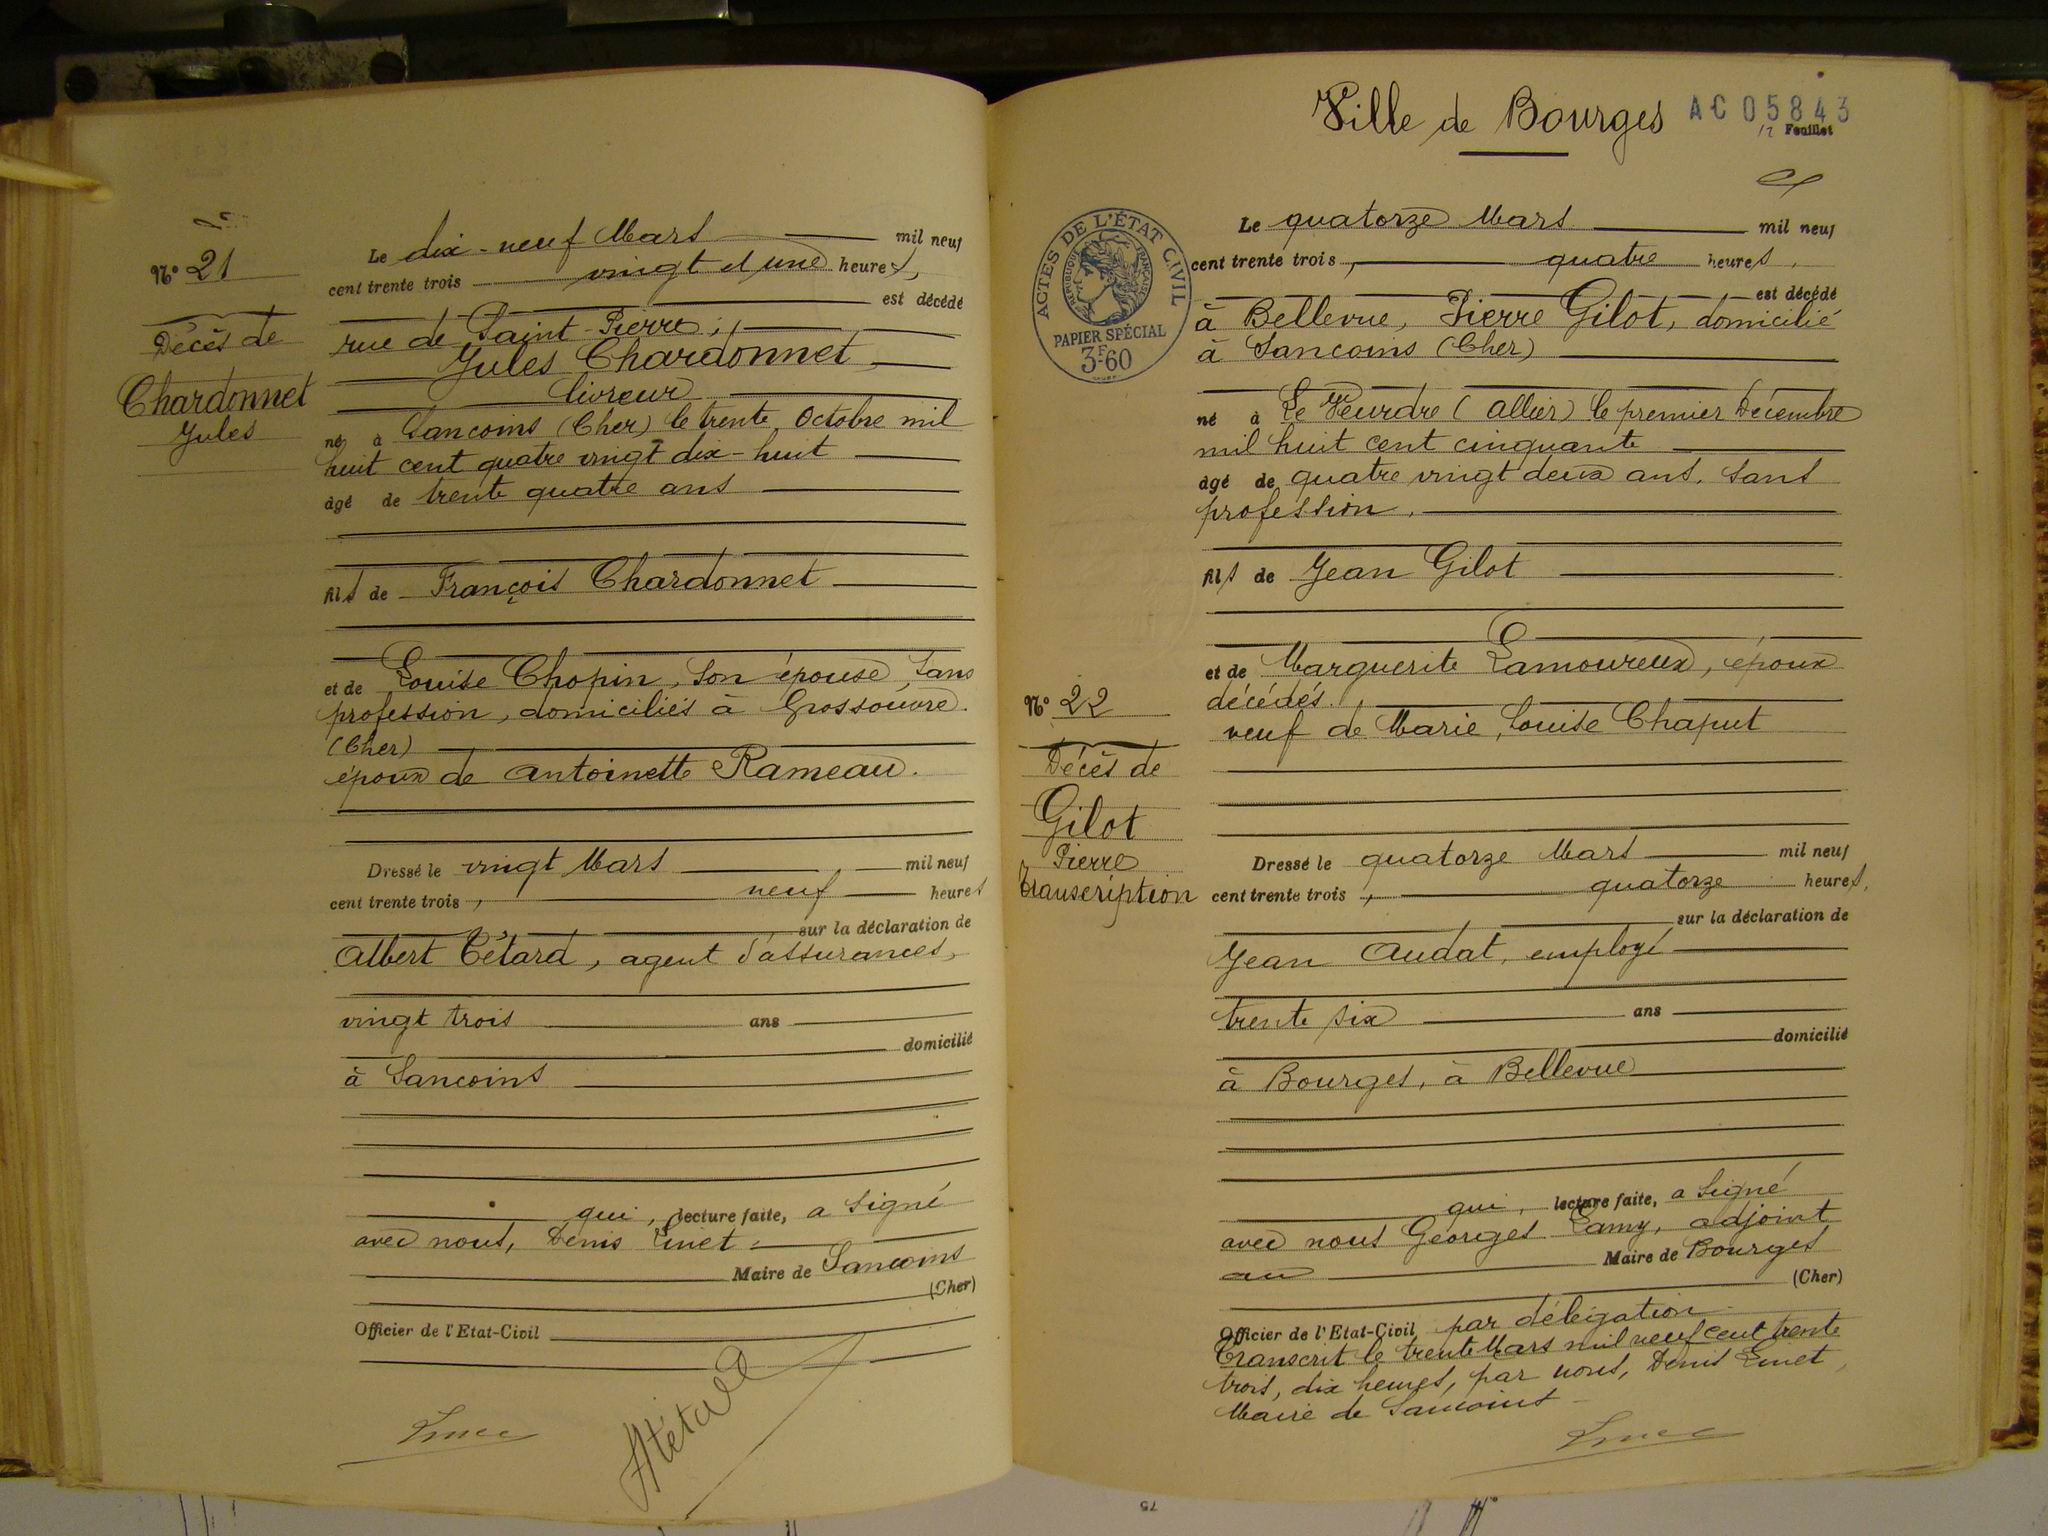 N° 21
Décès de
Chardonnet
Jules
Le dix-neuf Mars mil neuf
cent trente trois vingt et une heures,
est décédé
rue de Saint-Pierre,
Jules Chardonnet
livreur
né à Sancoins (Cher) le trente Octobre mil
huit cent quatre vingt dix-huit
âgé de trente quatre ans
fils de François Chardonnet
et de Louise Chopin, son épouse, sans
profession, domiciliés à Grossouvre.
(Cher)
époux de Antoinette Rameau.
Dressé le vingt Mars, mil neuf
cent trente trois, neuf heures
sur la déclaration de
Albert Tétard, agent d'assurances,
vingt trois ans
domicilié
à Sancoins
qui, lecture faite, a signé
avec nous, Denis Linet
Maire de Sancoins
(Cher)
Officier de l'Etat-Civil
Ville de Bourges
AC 05843
12 Feuillet
ACTES DE L'ÉTAT CIVIL
RÉPUBLIQUE FRANÇAISE
PAPIER SPÉCIAL
3F60
N° 22
Décès de
Gilot
Pierre
transcription
Le quatorze Mars mil neuf
cent trente trois, quatre heures,
est décédé
à Bellevue, Pierre Gilot, domicilié
à Sancoins (Cher)
né à Le Veurdre (Allier) le premier Décembre
mil huit cent cinquante
âgé de quatre vingt deux ans, sans
profession.
fils de Jean Gilot
et de Marguerite Lamoureux, époux
décédés.
veuf de Marie, Louise Chaput
Dressé le quatorze Mars mil neuf
cent trente trois, quatorze heures,
sur la déclaration de
Jean Audat, employé
trente six ans
domicilié
à Bourges, à Bellevue
qui, lecture faite, a signé
avec nous Georges Lamy, adjoint
au Maire de Bourges
(Cher)
Officier de l'Etat-Civil par délégation
Transcrit le trente Mars mil neuf cent trente
trois, dix heures, par nous, Denis Linet,
Maire de Sancoins
75